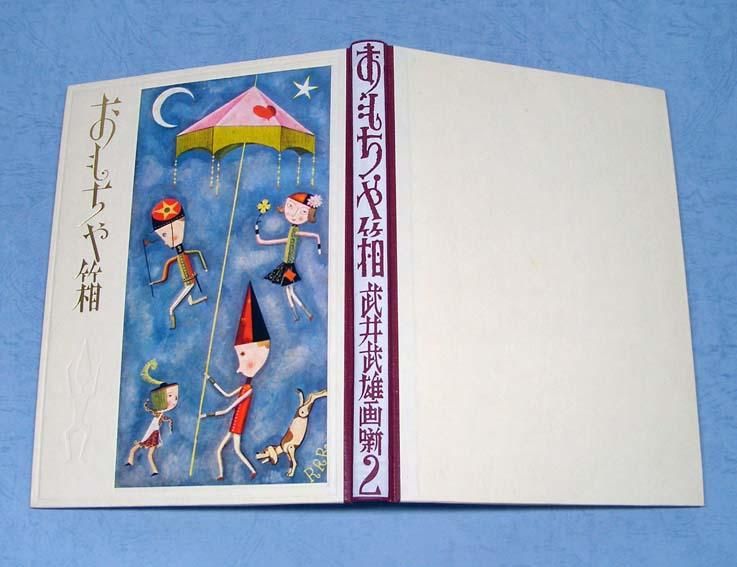 おもちゃ箱
おもちゃ箱 武井武雄画噺2
RRR